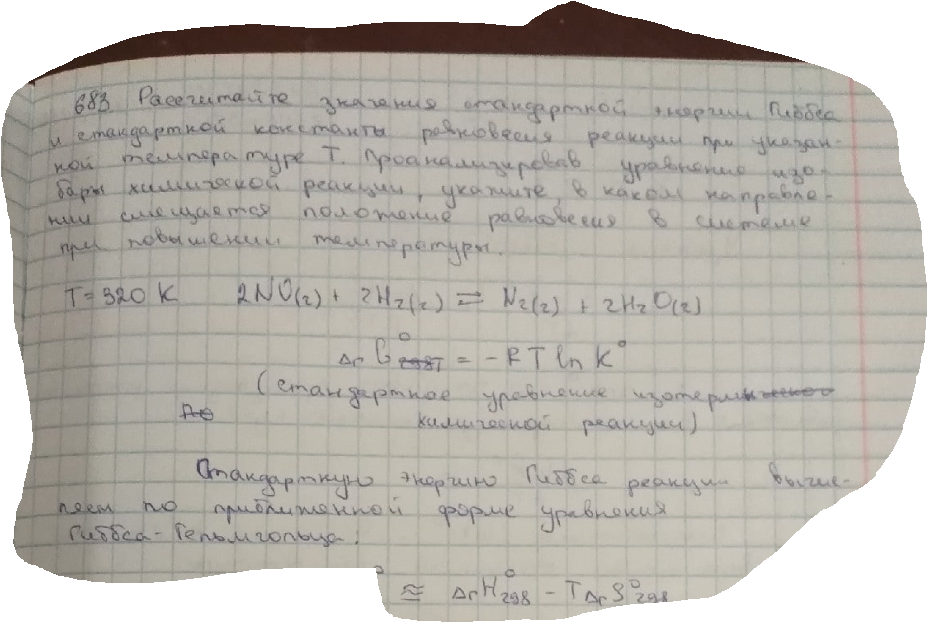 683 Рассчитайте значения стандартной энергии Гиббса
и стандартной константы равновесия реакции при указан-
ной температуре Т. Проанализировав уравнение изо-
бары химической реакции, укажите, в каком направле-
нии смещается положение равновесия в системе
при повышении температуры.
T = 320 K 2NO(г) + 2H₂(г) ⇌ N₂(г) + 2H₂O(г)
ΔrG°T = - RT ln K°
(стандартное уравнение изотермы
химической реакции)
Стандартную энергию Гиббса реакции вычис-
ляем по приближенной форме уравнения
Гиббса-Гельмгольца:
° ≈ ΔrH°298 - TΔrS°298